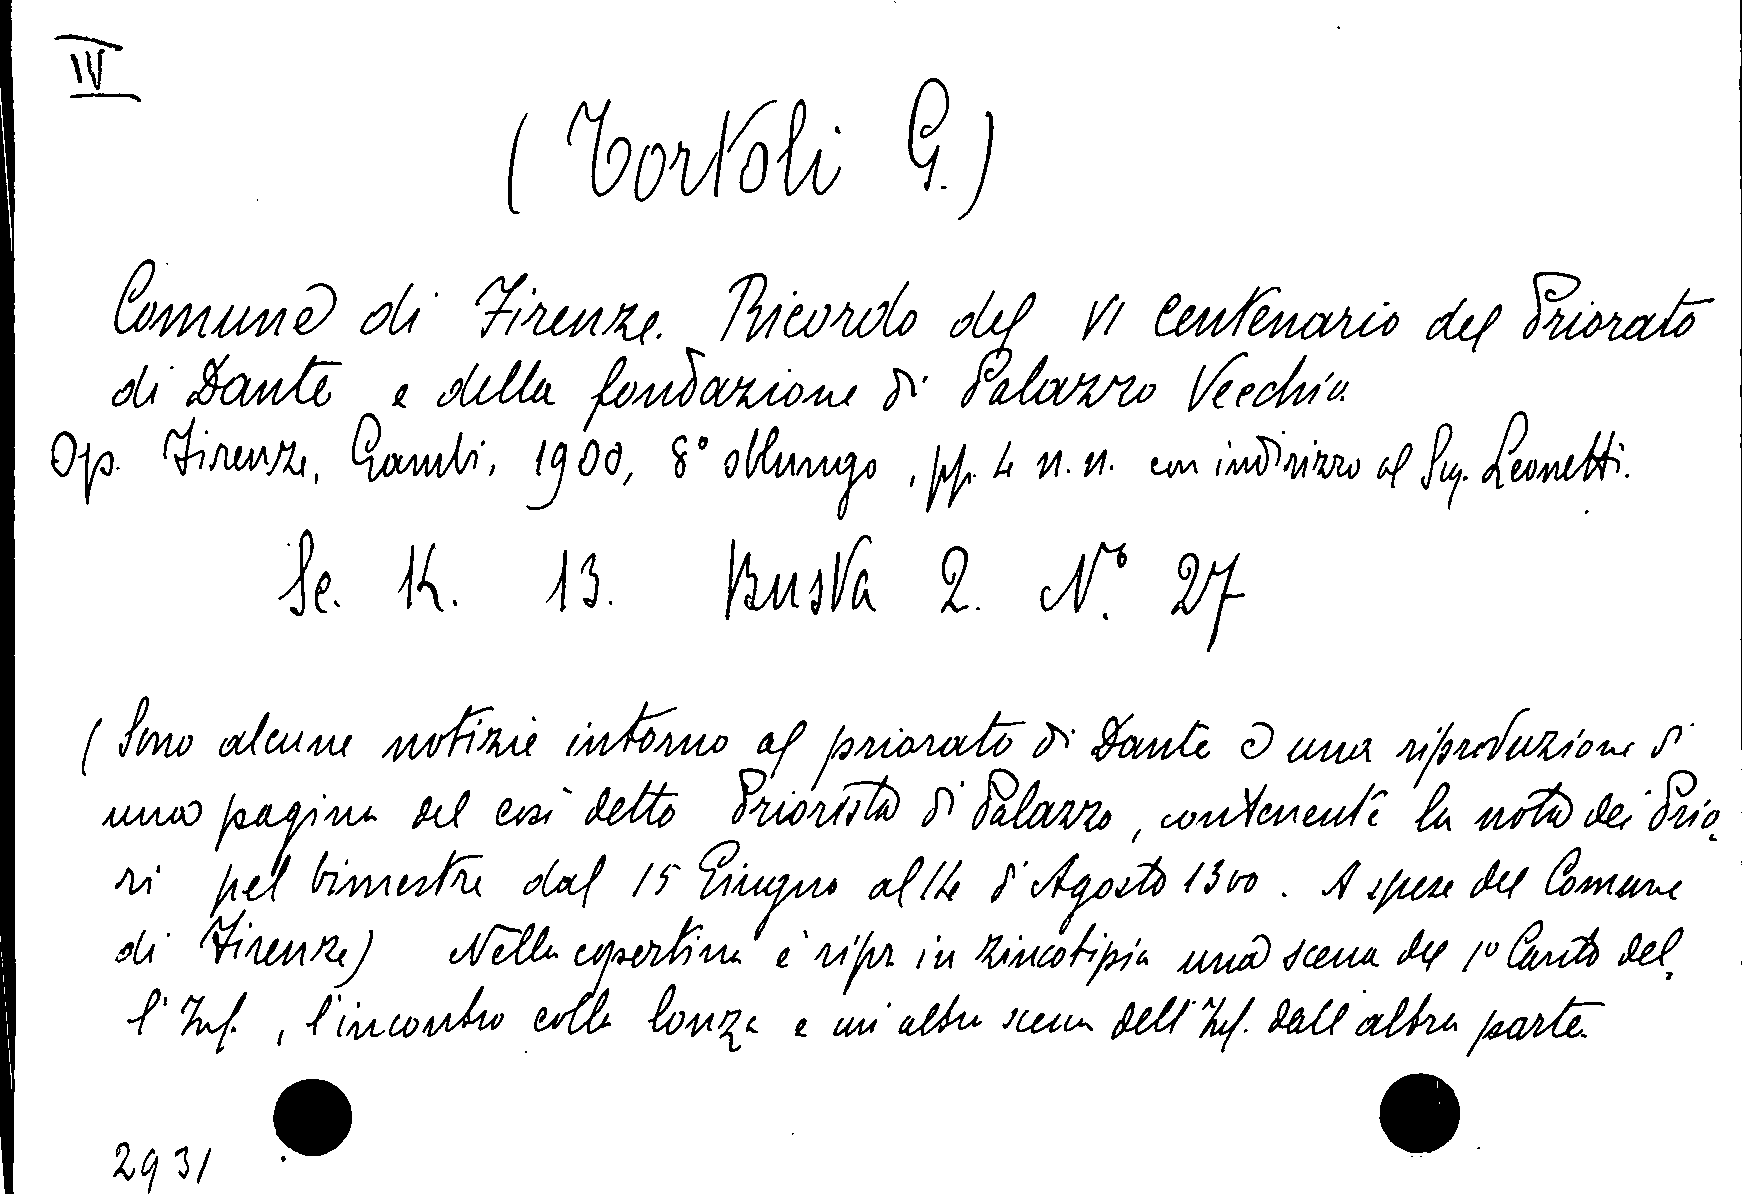 IV
(Tortoli G.)
Comune di Firenze. Ricordo del VI Centenario del Priorato
di Dante e della fondazione di Palazzo Vecchio
Op. Firenze, Gambi, 1900, 8° oblungo, pp. 4 n. n. con indirizzo al Sig. Leonetti.
Sc. K. 13. Busta 2. N.° 27
(Sono alcune notizie intorno al priorato di Dante e una riproduzione di
una pagina del così detto Priorista di Palazzo, contenente la nota dei Prio-
ri pel bimestre dal 15 Giugno al 14 d'Agosto 1300. A spese del Comune
di Firenze) Nella copertina è ripr in zincotipia una scena del 1° Canto del-
l'Inf., l'incontro colla lonza e un altra scena dell'Inf. dall'altra parte.
2931